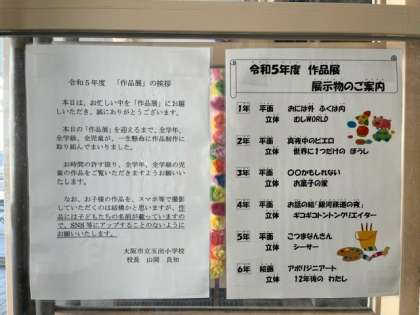 令和5年度 「作品展」の挨拶
本日は、お忙しい中を「作品展」にお越
しいただき、誠にありがとうございます。
本日の「作品展」を迎えるまで、全学年、
全学級、全児童が、一生懸命に作品制作に
取り組んでまいりました。
お時間の許す限り、全学年、全学級の児
童の作品をご覧いただきますようお願い
いたします。
なお、お子様の作品を、スマホ等で撮影
していただくのは結構かと思いますが、作
品には子どもたちの名前が載っていますの
で、SNS等にアップすることのないように
お願いいたします。
大阪市立玉出小学校
校長 山岡 良知
令和5年度 作品展
展示物のご案内
1年 平面 おには外 ふくは内
立体 むしWORLD
2年 平面 真夜中のピエロ
立体 世界に1つだけの ぼうし
3年 平面 〇〇かもしれない
立体 お菓子の家
4年 平面 お話の絵「銀河鉄道の夜」
立体 ギコギコトントンクリエイター
5年 平面 こつまなんきん
立体 シーサー
6年 絵画 アボリジニアート
立体 12年後の わたし